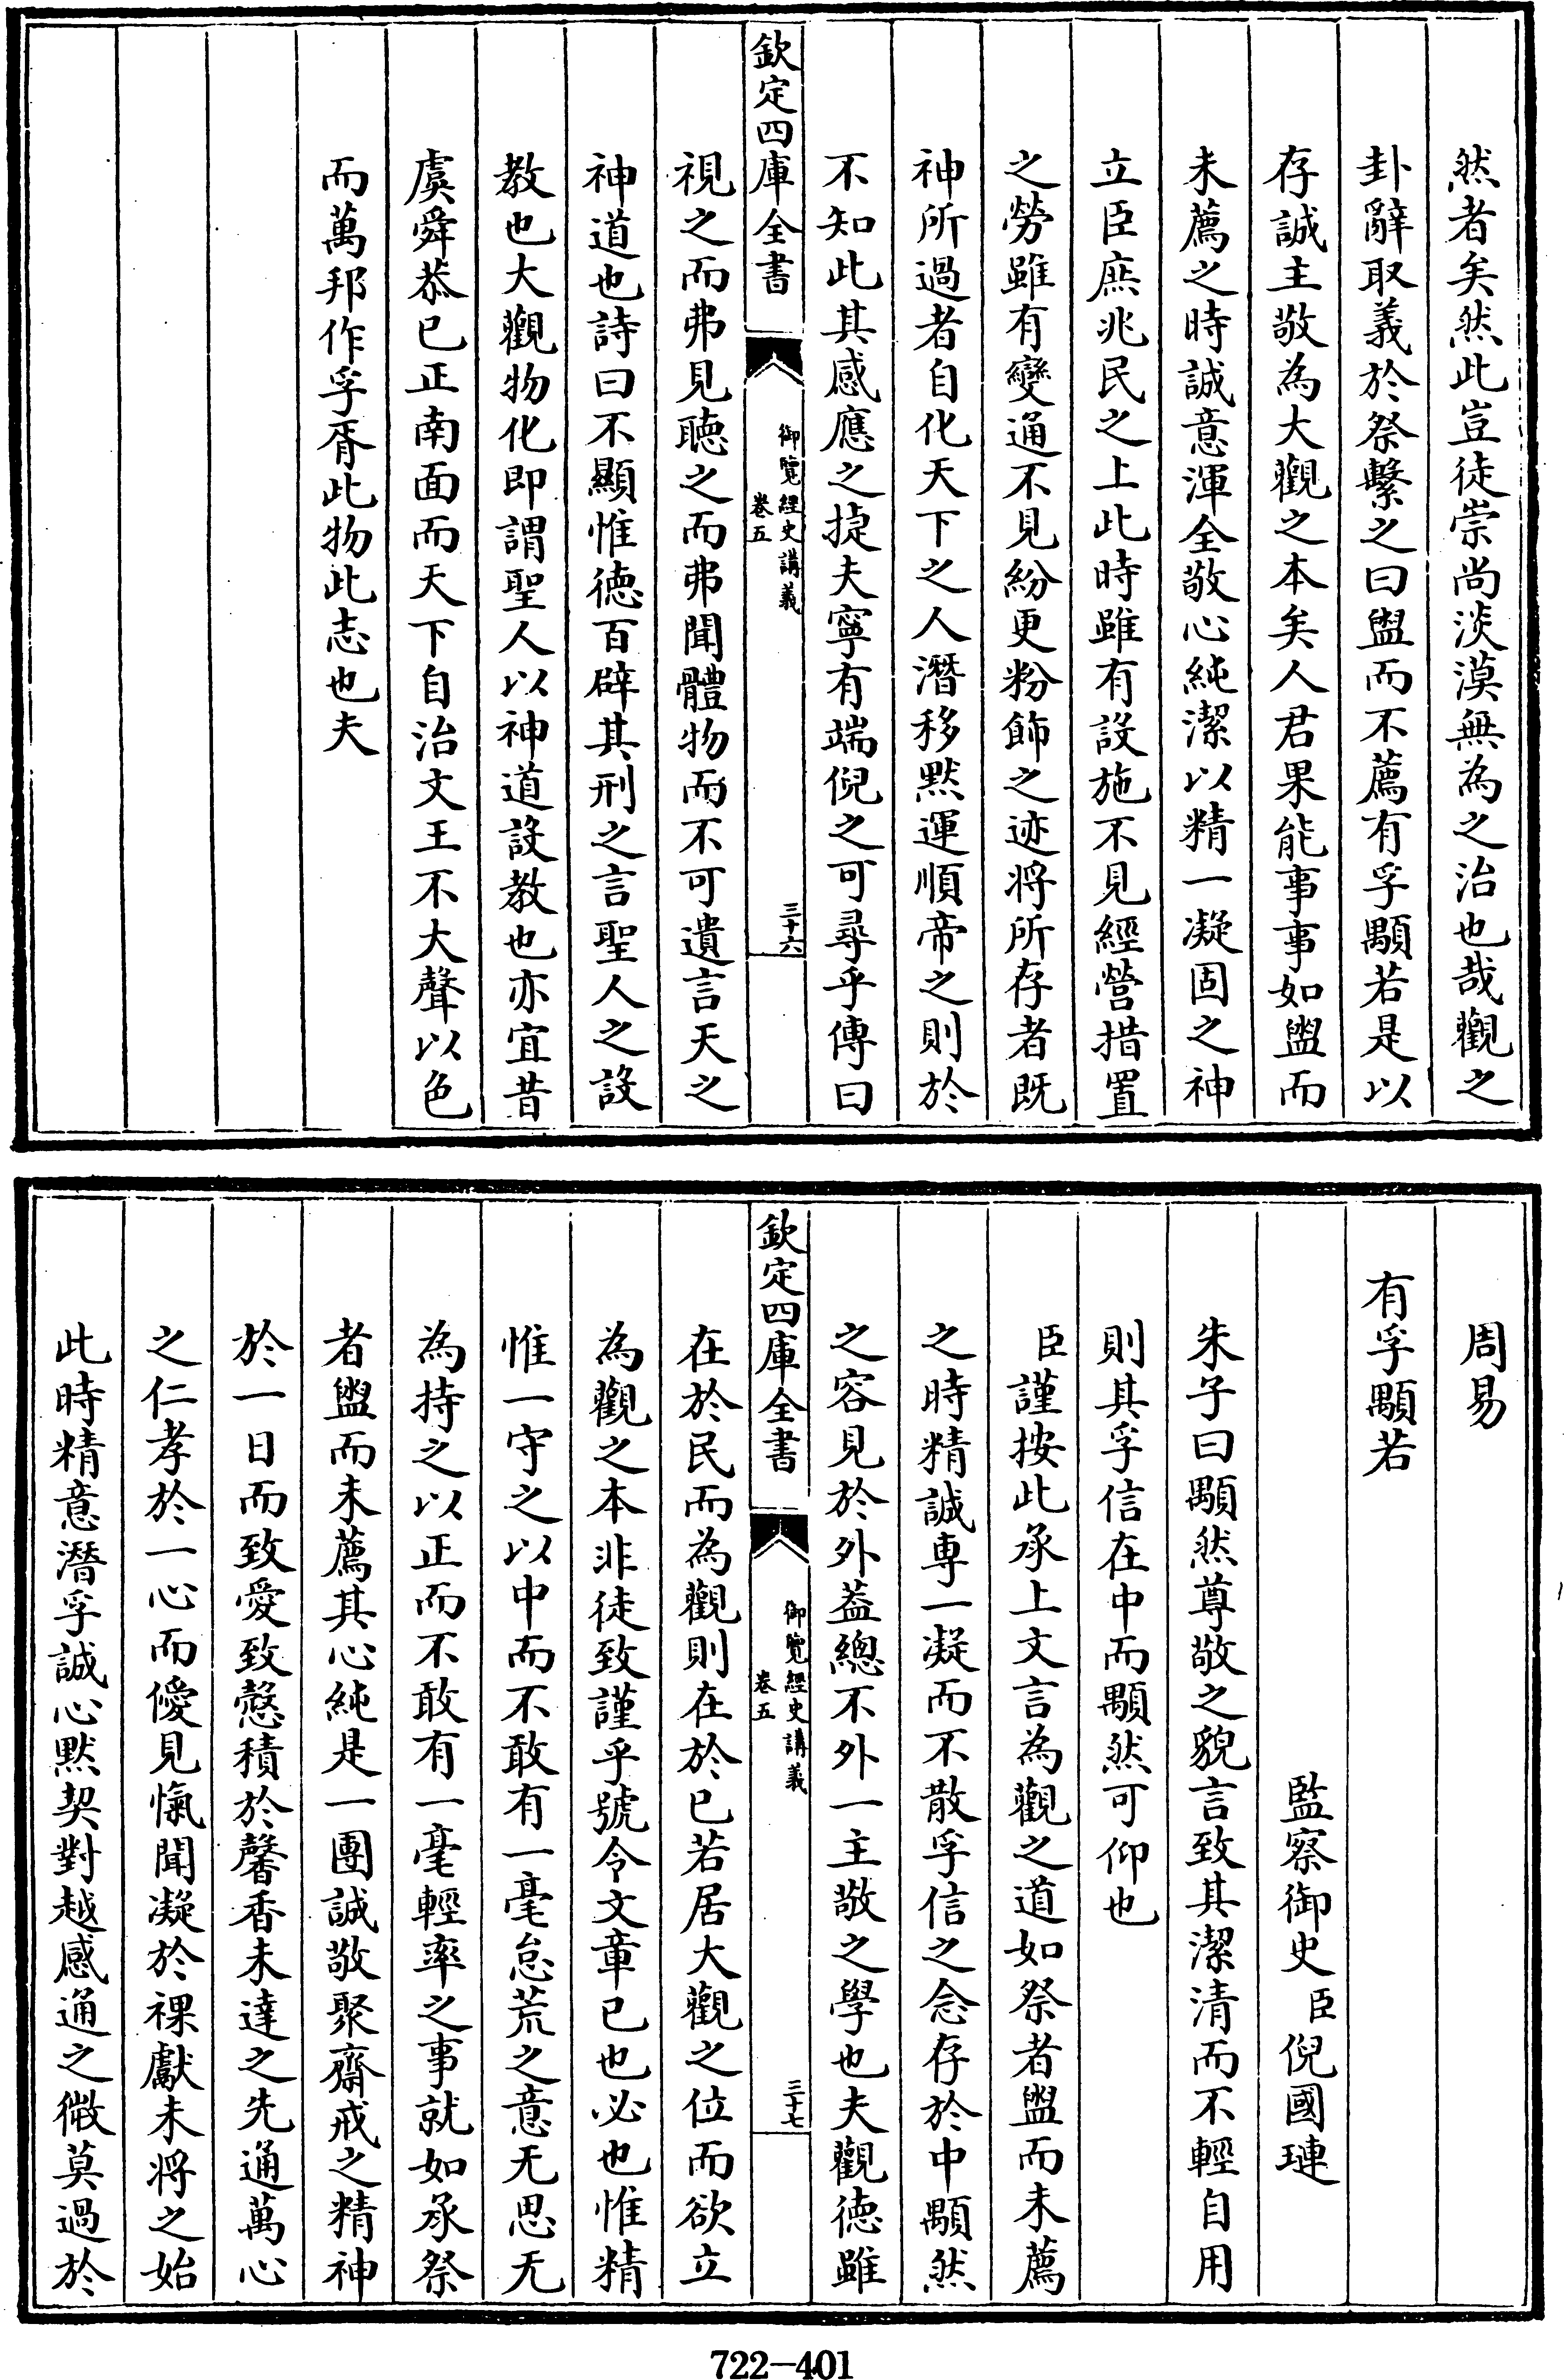 然者矣然此豈徒崇尚淡漠無為之治也哉觀之
卦辭取義於祭繫之曰盥而不薦有孚顒若是以
存誠主敬為大觀之本矣人君果能事事如盥而
未薦之時誠意渾全敬心純潔以精一凝固之神
立臣庶兆民之上此時雖有設施不見經營措置
之勞雖有變通不見紛更粉飾之迹将所存者既
神所過者自化天下之人潛移黙運順帝之則於
不知此其感應之捷夫寧有端倪之可尋乎傳曰
欽定四庫全書
御覽經史講義
卷五
三十六
視之而弗見聴之而弗聞體物而不可遺言天之
神道也詩曰不顯惟徳百辟其刑之言聖人之設
教也大觀物化即謂聖人以神道設教也亦宜昔
虞舜恭已正南面而天下自治文王不大聲以色
而萬邦作孚胥此物此志也夫
周易
有孚顒若
監察御史臣倪國璉
朱子曰顒然尊敬之貌言致其潔清而不輕自用
則其孚信在中而顒然可仰也
臣謹按此承上文言為觀之道如祭者盥而未薦
之時精誠専一凝而不散孚信之念存於中顒然
之容見於外葢總不外一主敬之學也夫觀徳雖
欽定四庫全書
御覽經史講義
卷五
三十七
在於民而為觀則在於已若居大觀之位而欲立
為觀之本非徒致謹乎號令文章已也必也惟精
惟一守之以中而不敢有一毫怠荒之意无思无
為持之以正而不敢有一毫輕率之事就如承祭
者盥而未薦其心純是一團誠敬聚齋戒之精神
於一日而致愛致慤積於馨香未達之先通萬心
之仁孝於一心而僾見愾聞凝於祼獻未将之始
此時精意潛孚誠心黙契對越感通之微莫過於
722-401